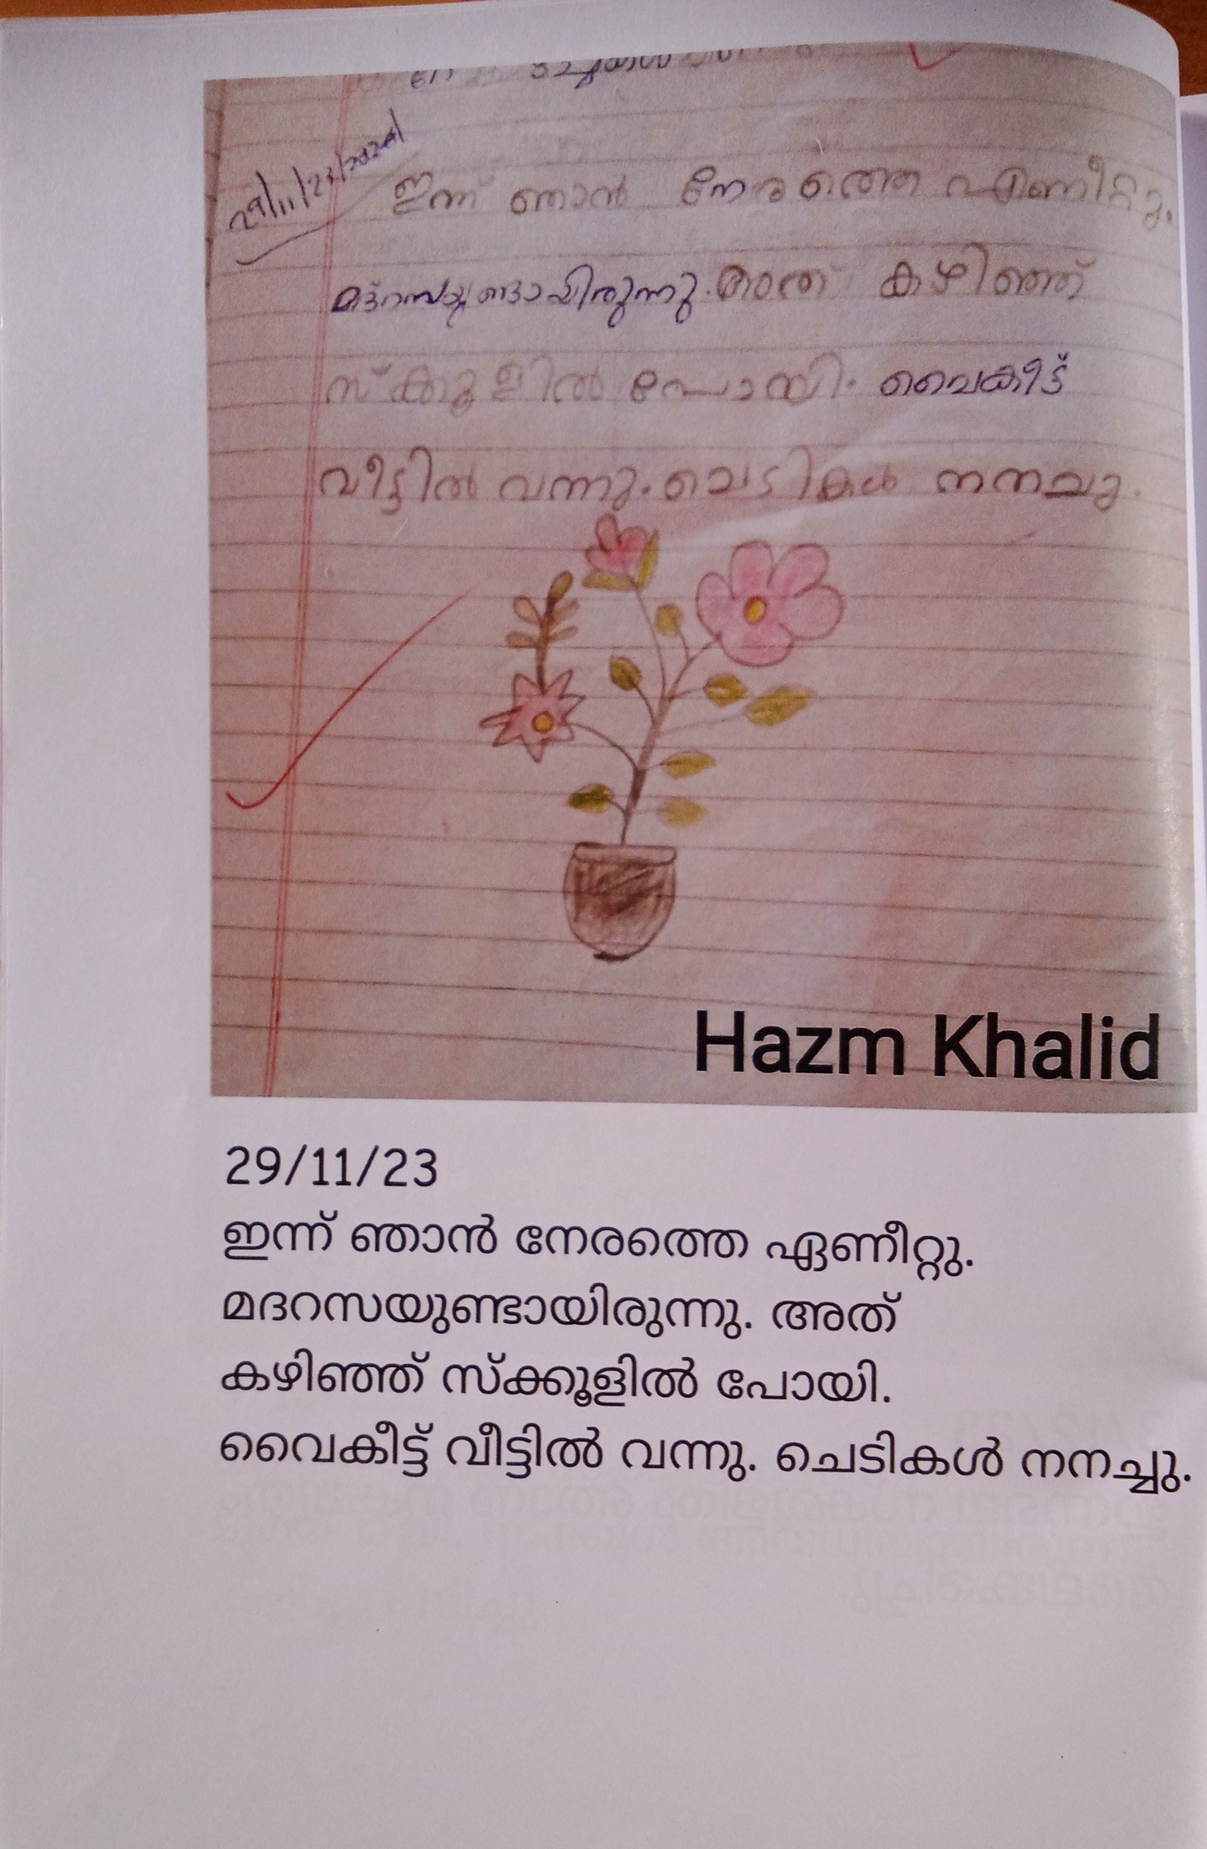 29/11/23
ഇന്ന് ഞാൻ നേരത്തെ എണീറ്റു.
മദ്റസയുണ്ടായിരുന്നു. അത് കഴിഞ്ഞ്
സ്ക്കൂളിൽ പോയി. വൈകീട്ട്
വീട്ടിൽ വന്നു. ചെടികൾ നനച്ചു.
Hazm Khalid
29/11/23
ഇന്ന് ഞാൻ നേരത്തെ ഏണീറ്റു.
മദറസയുണ്ടായിരുന്നു. അത്
കഴിഞ്ഞ് സ്ക്കൂളിൽ പോയി.
വൈകീട്ട് വീട്ടിൽ വന്നു. ചെടികൾ നനച്ചു.